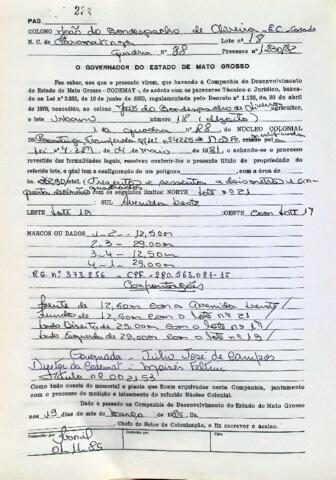 PAG
COLONO João do Bondespacho de Oliveira - E.C. Casado
N. C. de Paranatinga Lote nº 18
Quadra nº 88 Processo nº 1.530/82
O GOVERNADOR DO ESTADO DE MATO GROSSO
Faz saber, aos que a presente virem, que havendo a Companhia de Desenvolvimento
do Estado de Mato Grosso - CODEMAT -, de acordo com os pareceres Técnico e Jurídico, baseada
na Lei nº 2.933, de 10 de junho de 1969, regulamentada pelo Decreto nº 1.138, de 20 de abril
de 1970, concedido, ao colono João do Bondespacho de Oliveira agricultor,
o lote Urbano número 18 (dezoito)
da quadra nº 88 do NÚCLEO COLONIAL
de Paranatinga, criado pela
Lei nº de de maio de 1981, e achando-se o processo
revestido das formalidades legais, resolveu conferir-lhe o presente título de propriedade do
referido lote, o qual tem a configuração de um polígono
com os seguintes limites: NORTE Lote nº 21
SUL Avenida
LESTE Lote 19 OESTE Com Lote 17
MARCOS OU DADOS 1 - 2 - 12,50m
2 - 3 - 29,00m
3 - 4 - 12,50m
4 - 1 - 29,00m
R.G. nº 373.256 - CPF - 280.563.081-15
Confrontações
Frente de 12,50m com a Avenida
Fundos de 12,50m com o lote nº 21
Lado Direito de 29,00m com o lote nº 17
Lado Esquerdo de 29,00m com o lote nº 19
Governador - Julio José de Campos
Diretor da Codemat - Moises Feltrin
Titulo nº 002153
Como tudo consta do memorial e planta que ficam arquivados nesta Companhia, juntamente
com o processo de medição e loteamento do referido Núcleo Colonial.
Dado e passado na Companhia de Desenvolvimento do Estado de Mato Grosso
aos 19 dias de março de 1985. Eu,
, Chefe do Setor de Colonização, o fiz escrever e assino.
Transcrito por
Conferido
Visto
01-11-85